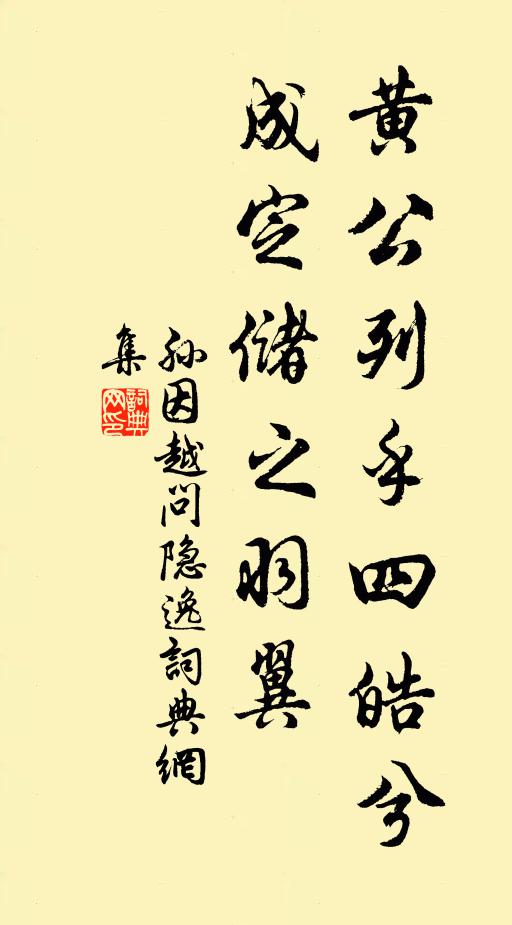 黄公列乎四皓兮
成定儲之羽翼
孙因越问隐逸詞典網
集
詞典
网印